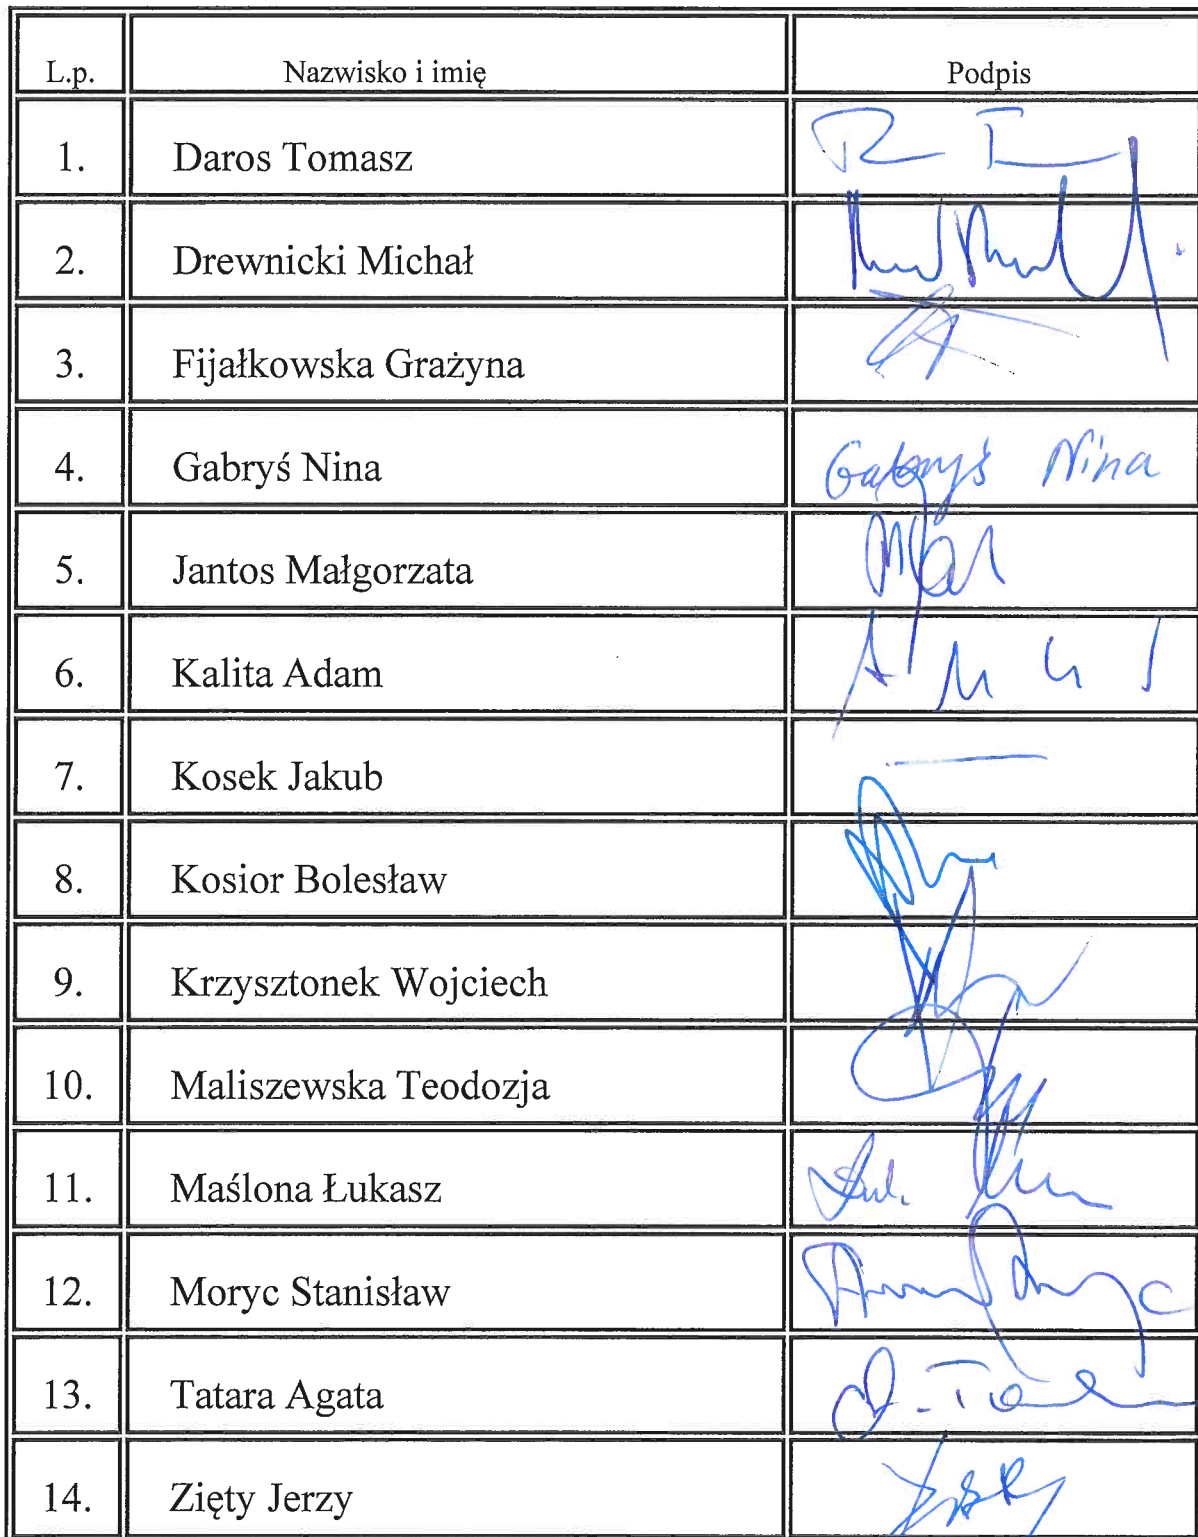 L.p. Nazwisko i imię Podpis
1. Daros Tomasz
2. Drewnicki Michał
3. Fijałkowska Grażyna
4. Gabryś Nina Gabryś Nina
5. Jantos Małgorzata
6. Kalita Adam
7. Kosek Jakub
8. Kosior Bolesław
9. Krzysztonek Wojciech
10. Maliszewska Teodozja
11. Maślona Łukasz
12. Moryc Stanisław
13. Tatara Agata
14. Zięty Jerzy